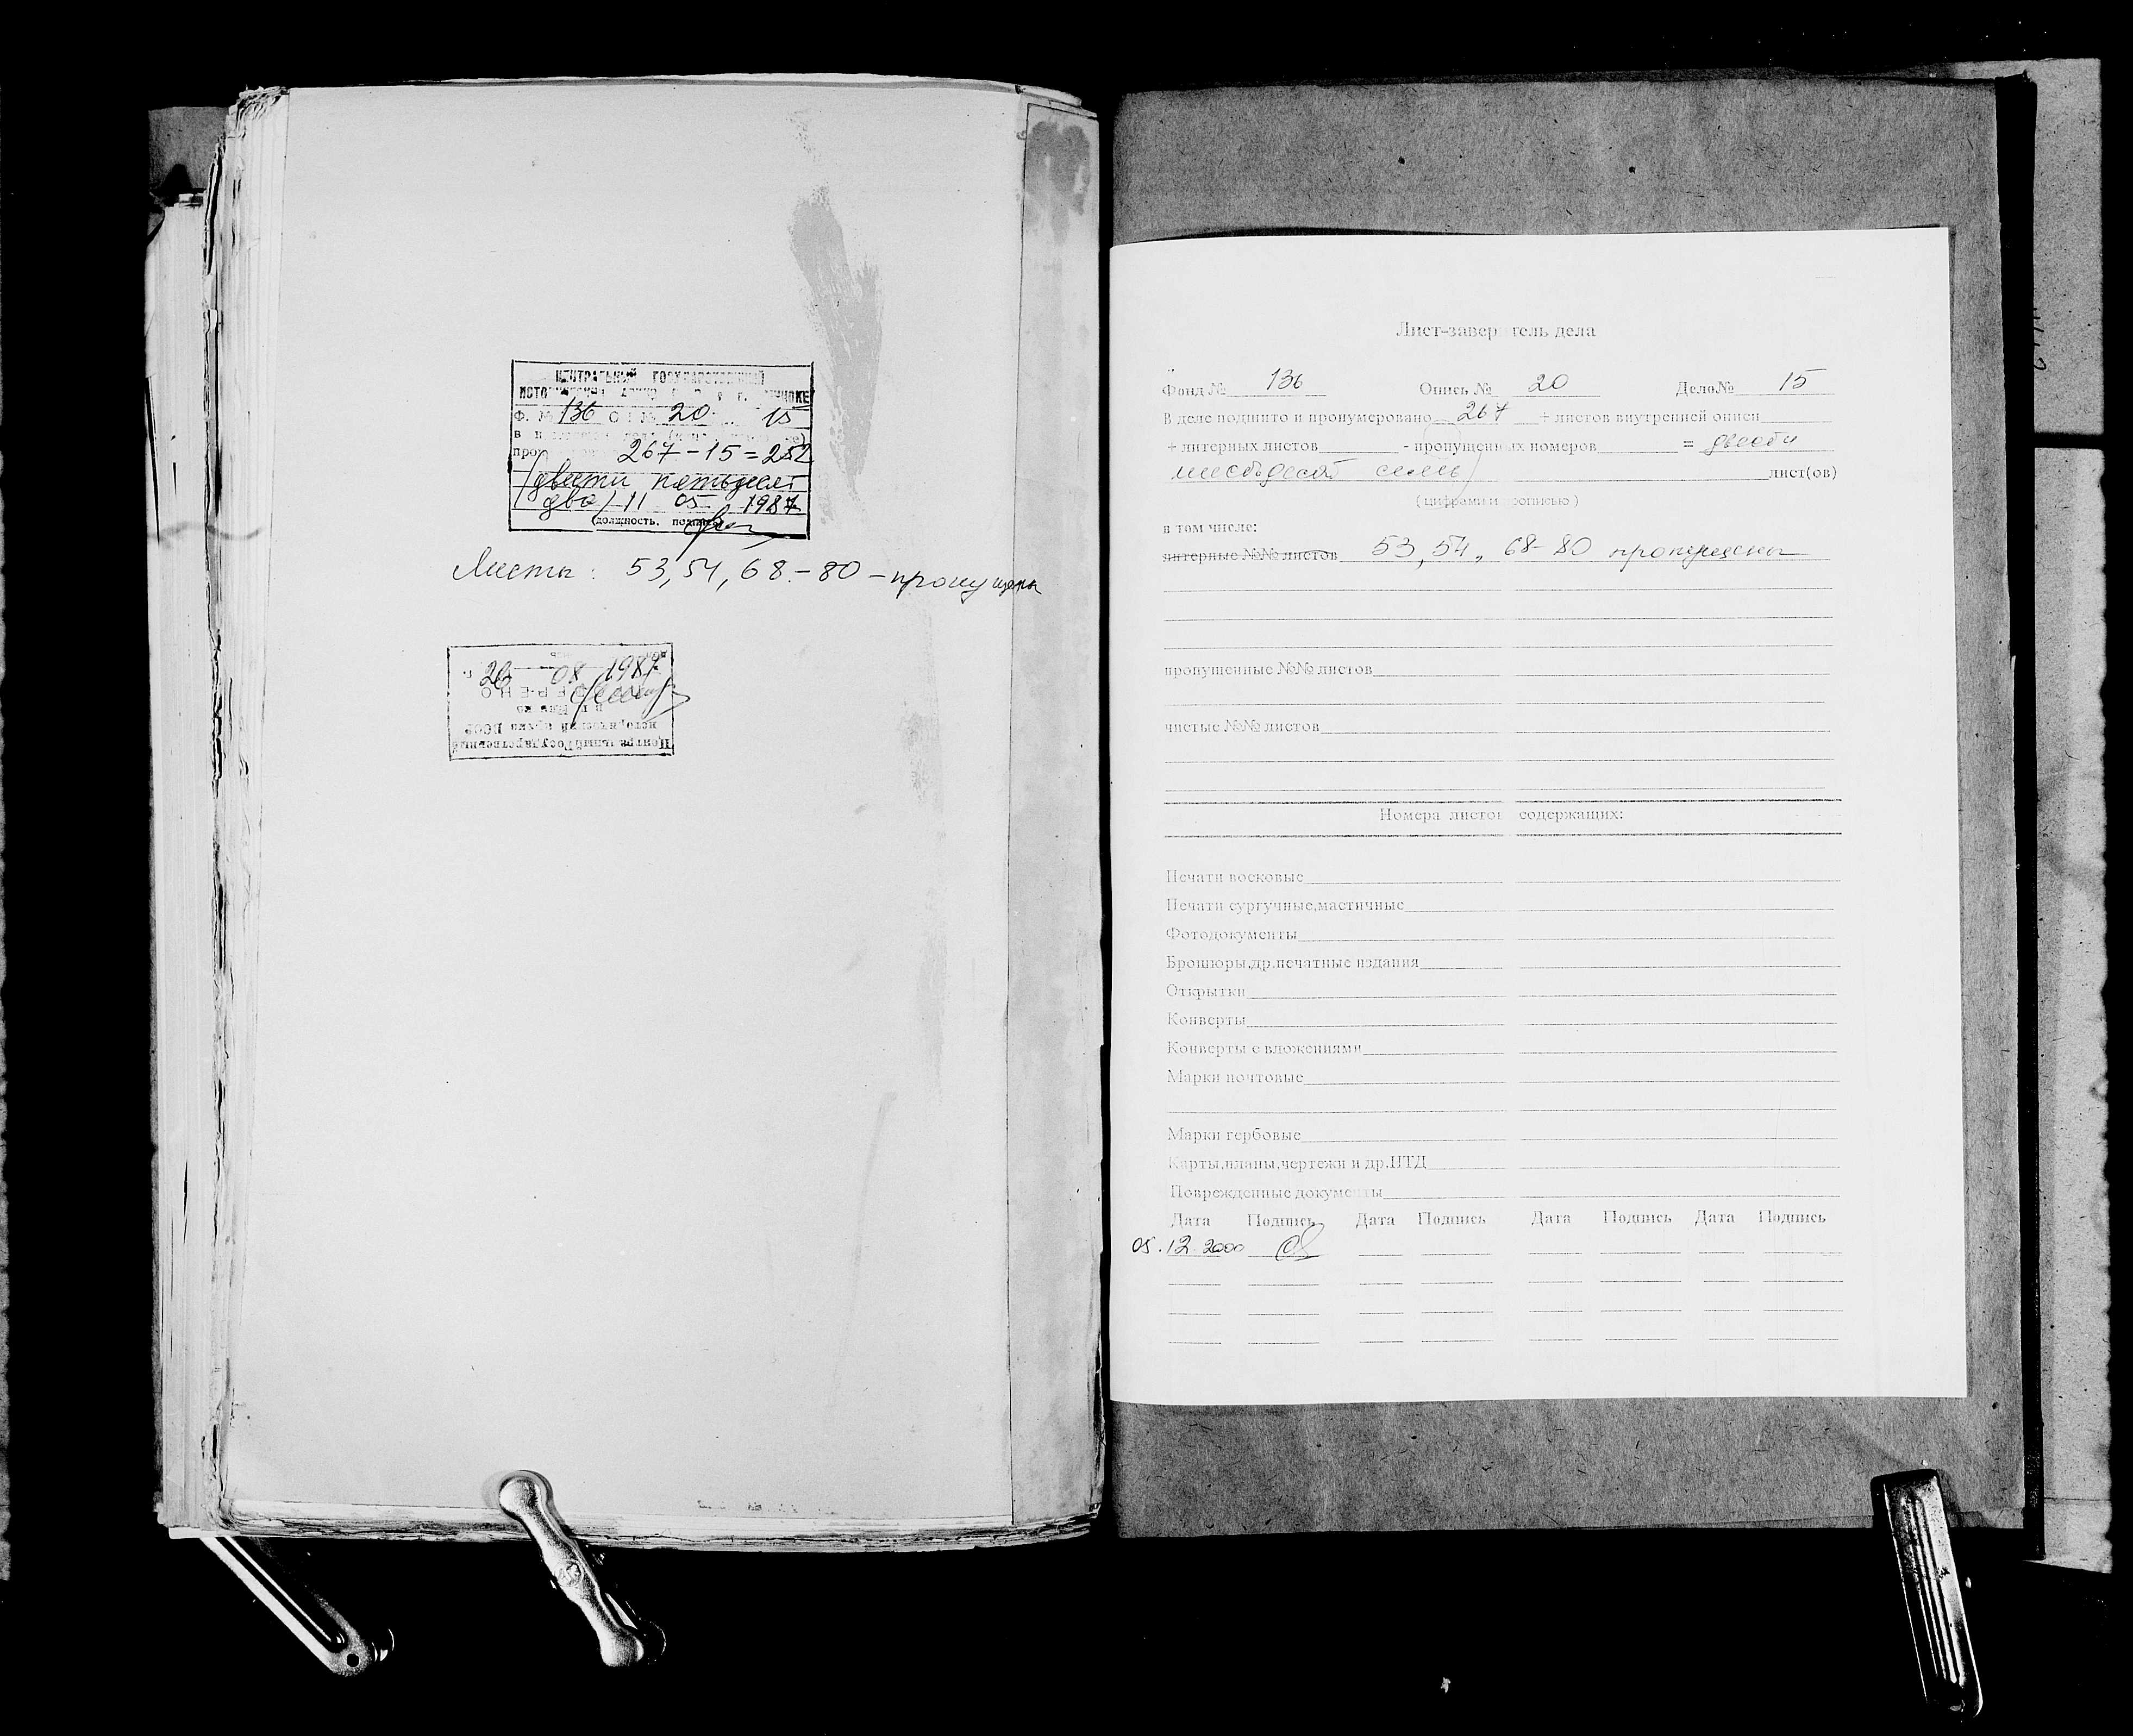 ЦЕНТРАЛЬНЫЙ ГОСУДАРСТВЕННЫЙ
Ф. № 136 О № 20 15
267 - 15 = 252
/двести пятьдесят
два/ 11 05 1987
(должность, подпись)
Листы: 53, 54, 68 - 80 - пропущены
26 08 1987 г.
Центральный Государственный
исторический архив БССР
Лист-заверитель дела
Фонд № 136 Опись № 20 Дело№ 15
В деле подшито и пронумеровано 267 + листов внутренней описи
+ литерных листов - пропущенных номеров = двести
шестьдесят семь) лист(ов)
(цифрами и прописью)
в том числе:
литерные №№ листов 53, 54, 68-80 пропущены
пропущенные №№ листов
чистые №№ листов
Номера листов содержащих:
Печати восковые
Печати сургучные,мастичные
Фотодокументы
Брошюры,др.печатные издания
Открытки
Конверты
Конверты с вложениями
Марки почтовые
Марки гербовые
Карты,планы,чертежи и др.НТД
Поврежденные документы
Дата Подпись Дата Подпись Дата Подпись Дата Подпись
05.12.2000